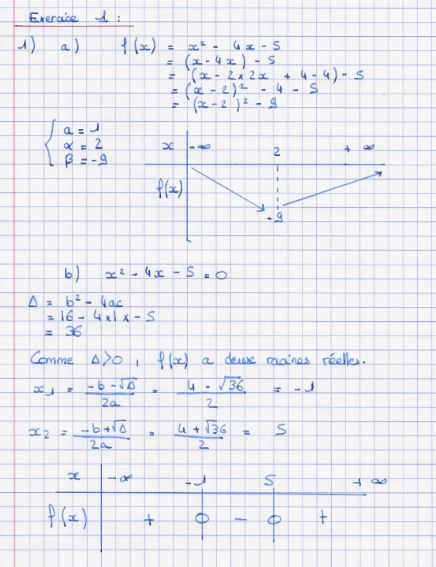 Exercice 1 :
1) a) f(x) = x² - 4x - 5
= (x - 4x) - 5
= (x - 2×2x + 4 - 4) - 5
= (x - 2)² - 4 - 5
= (x - 2)² - 9
{ a = 1
α = 2
β = -9
x -∞ 2 + ∞
f(x)
-9
b) x² - 4x - 5 = 0
Δ = b² - 4ac
= 16 - 4×1×-5
= 36
Comme Δ>0, f(x) a deux racines réelles.
x₁ = (-b-√Δ)/2a = (4 - √36)/2 = -1
x₂ = (-b+√Δ)/2a = (4 + √36)/2 = 5
x -∞ -1 5 + ∞
f(x) + 0 - 0 +